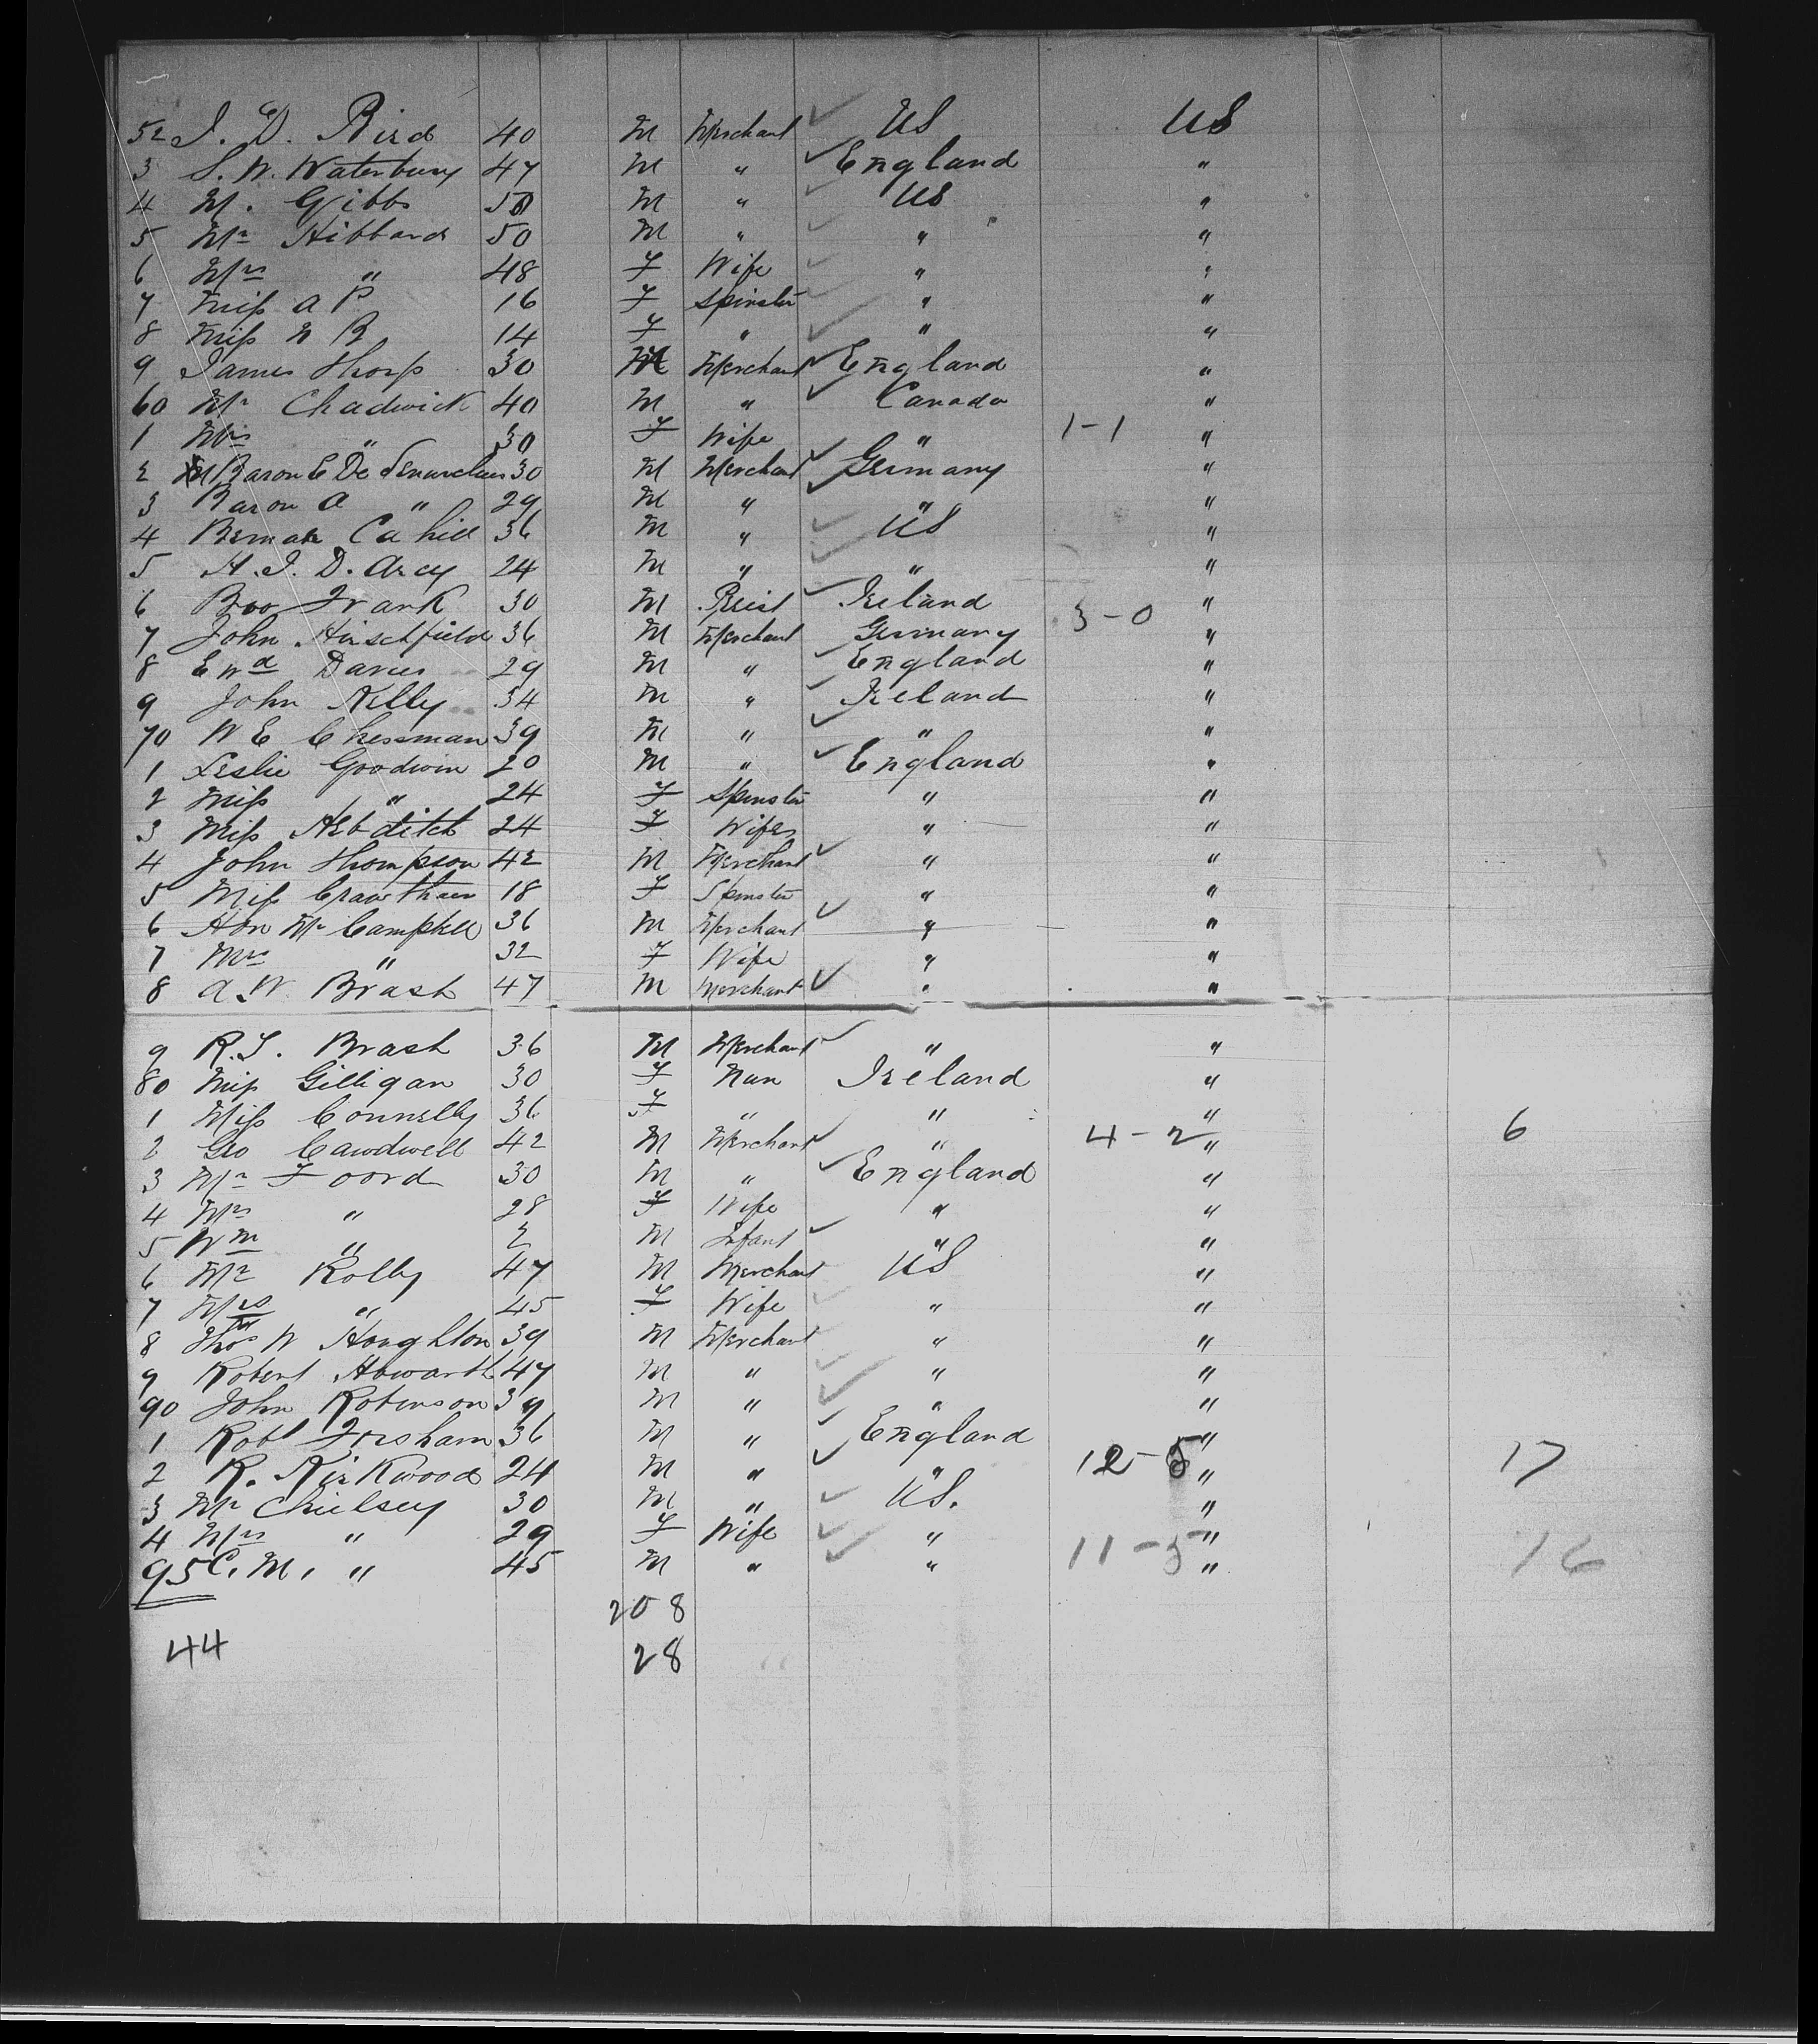 52 J. D. Bird 40 M Merchant US US
3 S. W. Waterbury 47 M " England "
4 M. Gibbs 50 M " US "
5 Mr Hibbard 50 M " " "
6 Mrs " 48 F Wife " "
7 Miss A P. 16 F Spinster " "
8 Miss N B 14 F " " "
9 James Thorp 30 M Merchant England "
60 Mr Chadwick 40 M " Canada "
1 Mrs " 30 F Wife " 1-1 "
2 Baron E De 30 M Merchant Germany "
3 Baron A " 29 M " " "
4 Cahill 36 M " US "
5 H. J. D. Arcy 24 M " " "
6 Bro Frank 30 M Priest Ireland "
7 John Hirschfield 36 M Merchant Germany 3-0 "
8 Ewd Davies 29 M " England "
9 John Kelly 34 M " Ireland "
70 W E Chessman 39 M " " "
1 Leslie Goodwin 20 M " England "
2 Miss " 24 F Spinster " "
3 Miss Hebditch 24 F Wifes " "
4 John Thompson 42 M Merchant " "
5 Miss Crawthaw 18 F Spinster " "
6 Hon Mr Campbell 36 M Merchant " "
7 Mrs " 32 F Wife " "
8 A. W. Brash 47 M Merchant " "
9 R. T. Brash 36 M Merchant " "
80 Miss Gilligan 30 F Nun Ireland "
1 Miss Connelly 36 F " " "
2 Geo Cawdwell 42 M Merchant " 4-2 " 6
3 Mr Foord 30 M " England "
4 Mrs " 28 F Wife " "
5 Wm " 2 M Infant " "
6 Mr Rolly 47 M Merchant US "
7 Mrs " 45 F Wife " "
8 Thos W Houghton 39 M Merchant " "
9 Robert Howarth 47 M " " "
90 John Robinson 39 M " " "
1 Robt Forsham 36 M " England "
2 R. Kirkwood 24 M " " 12-5 " 17
3 Mr Chielsey 30 M " US. "
4 Mrs " 29 F Wife " "
95 C. M. " 45 M " " 11-5 " 16
208
44 28